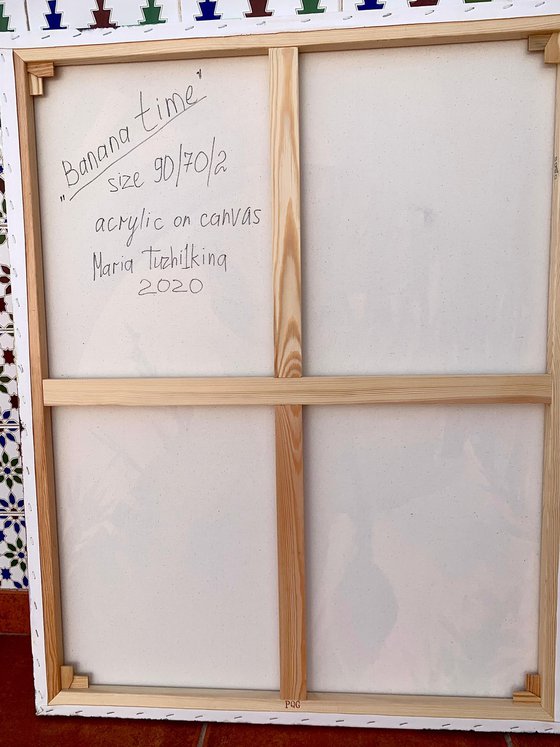 "Banana time"
size 90/70/2
acrylic on canvas
Maria Tuzhilkina
2020
PQG